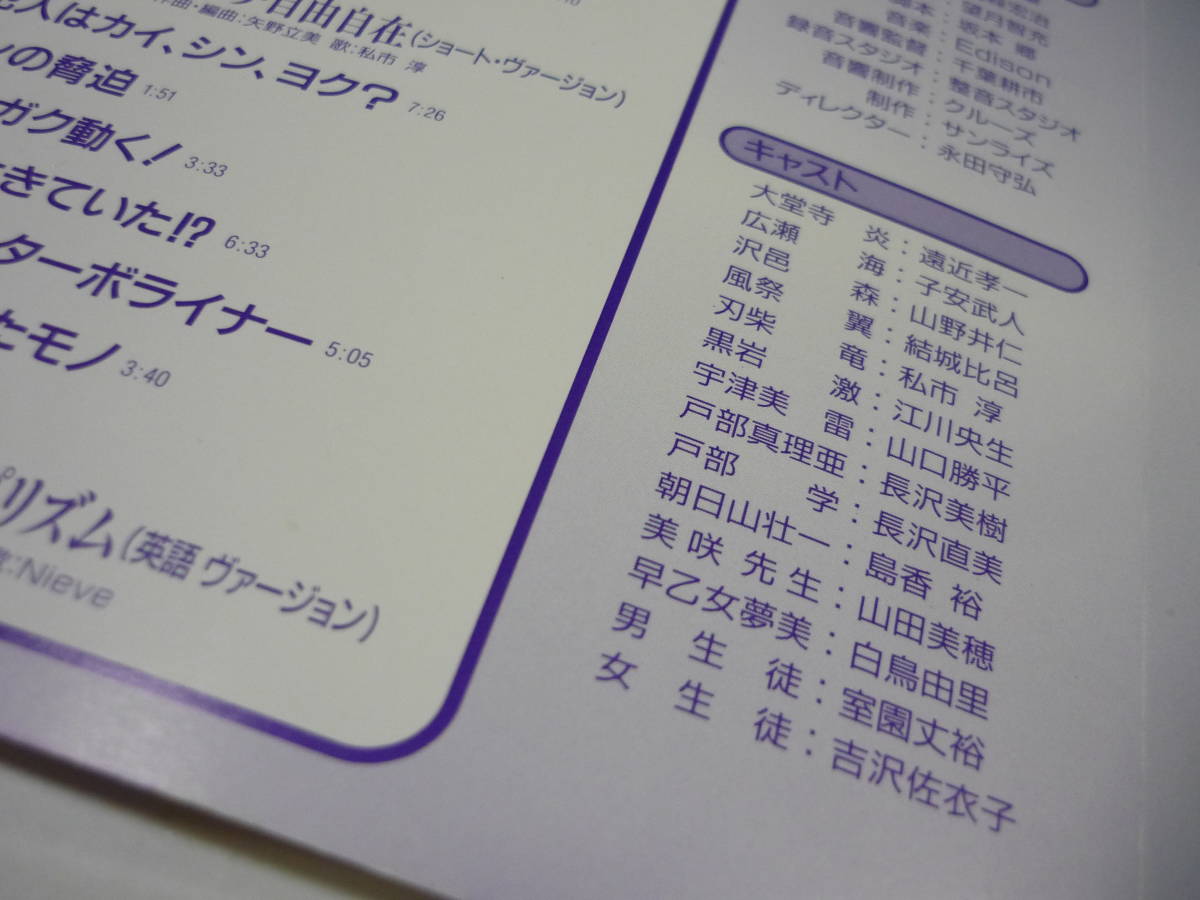 自由自在(ショート・ヴァージョン)
作曲・編曲:矢野立美 歌:私市 淳
人はカイ、シン、ヨク? 7:26
の脅迫 1:51
ガク動く! 3:33
きていた!? 6:33
ターボライナー 5:05
たモノ 3:40
リズム(英語 ヴァージョン)
歌:Nieve
脚本:望月智充
音楽:Edison
音響監督:千葉耕市
録音スタジオ:整音スタジオ
音響制作:クルーズ
制作:サンライズ
ディレクター:永田守弘
キャスト
大堂寺 炎:遠近孝一
広瀬 海:子安武人
沢邑 森:山野井仁
風祭 翼:結城比呂
刃柴 竜:私市 淳
黒岩 激:江川央生
宇津美 雷:山口勝平
戸部真理亜:長沢美樹
戸部 学:長沢直美
朝日山壮一:島香 裕
美咲先生:山田美穂
早乙女夢美:白鳥由里
男生徒:室園丈裕
女生徒:吉沢佐衣子